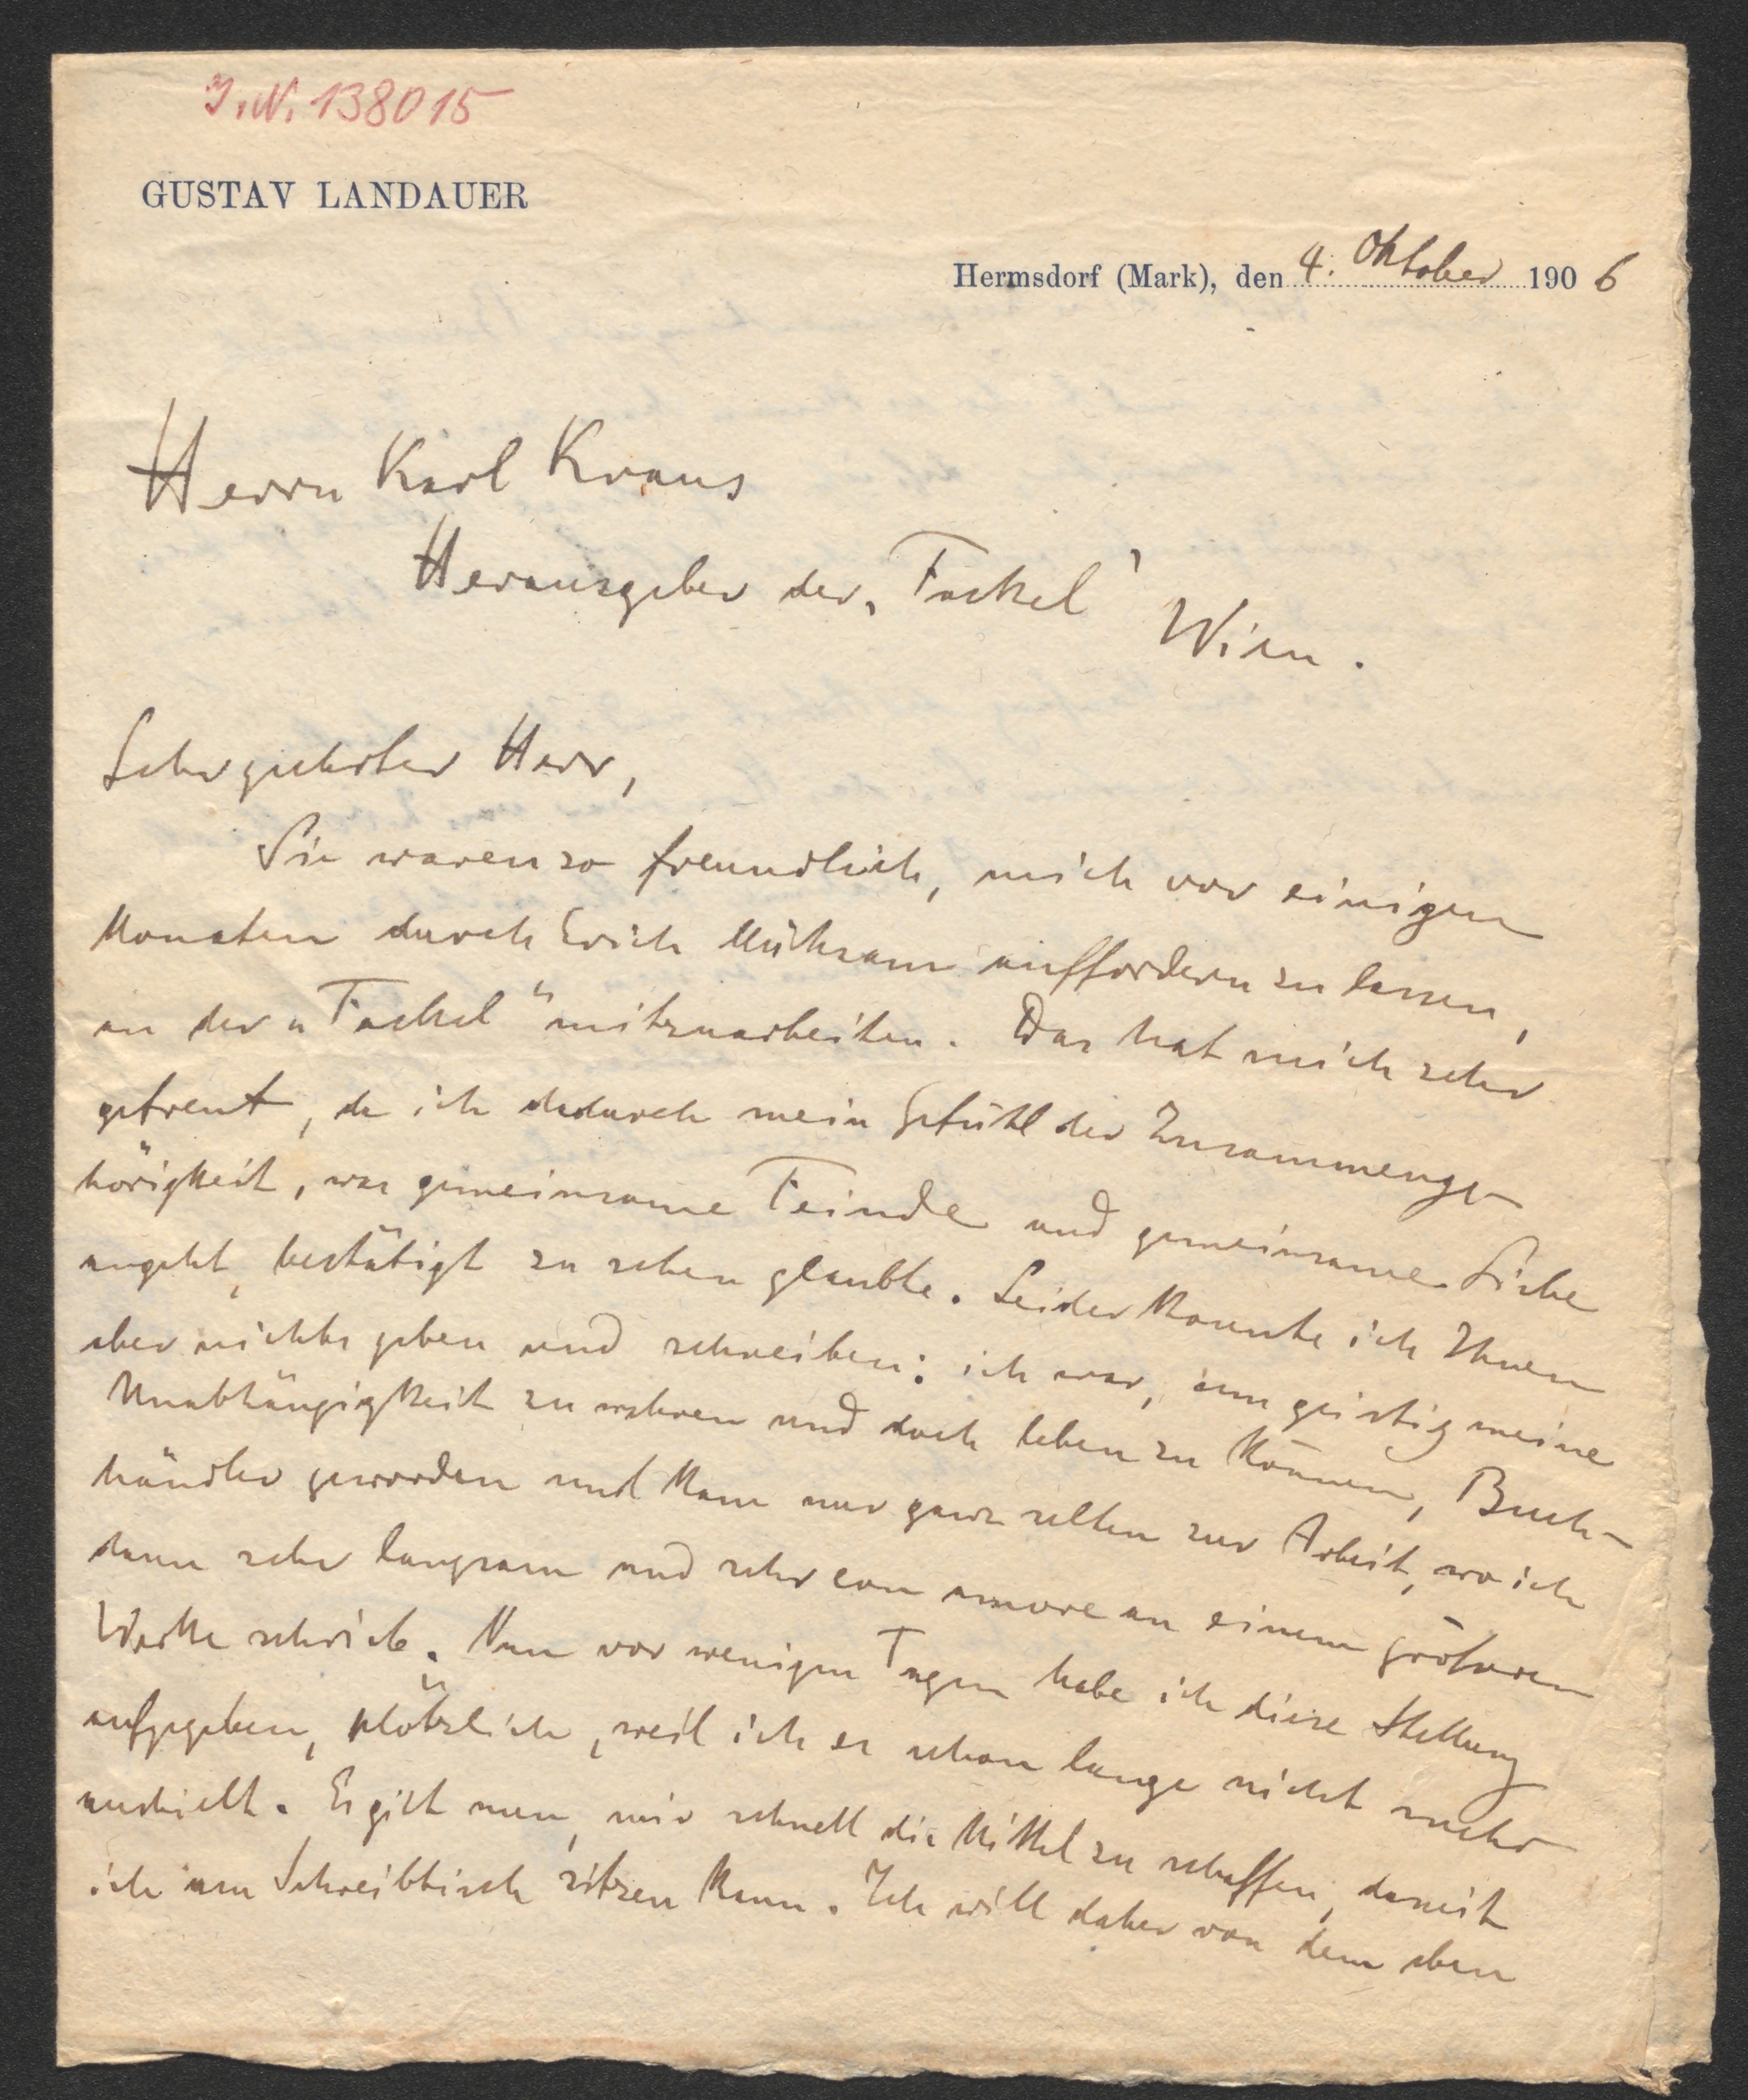 J.N. 138015
GUSTAV LANDAUER
Hermsdorf (Mark), den 4. Oktober 1906
Herrn Karl Kraus
Herausgeber der „Fackel"
Wien.
Sehr geehrter Herr,
Sie waren so freundlich, mich vor einigen
Monaten durch Erich Mühsam auffordern zu lassen,
an der „Fackel" mitzuarbeiten. Das hat mich sehr
gefreut, da ich dadurch mein Gefühl der Zusammenge-
hörigkeit, was gemeinsame Feinde und gemeinsame Liebe
angeht, bestätigt zu sehen glaubte. Leider konnte ich Ihnen
aber nichts geben und schreiben: ich war, um geistig meine
Unabhängigkeit zu wahren und doch leben zu können, Buch-
händler geworden und kam nur ganz selten zur Arbeit, wo ich
dann sehr langsam und sehr con amore an einem größeren
Werke schrieb. Nun vor wenigen Tagen habe ich diese Stellung
aufgegeben, plötzlich, weil ich es schon lange nicht mehr
aushielt. Es gilt nun, mir schnell die Mittel zu schaffen, damit
ich am Schreibtisch sitzen kann. Ich will daher von dem eben